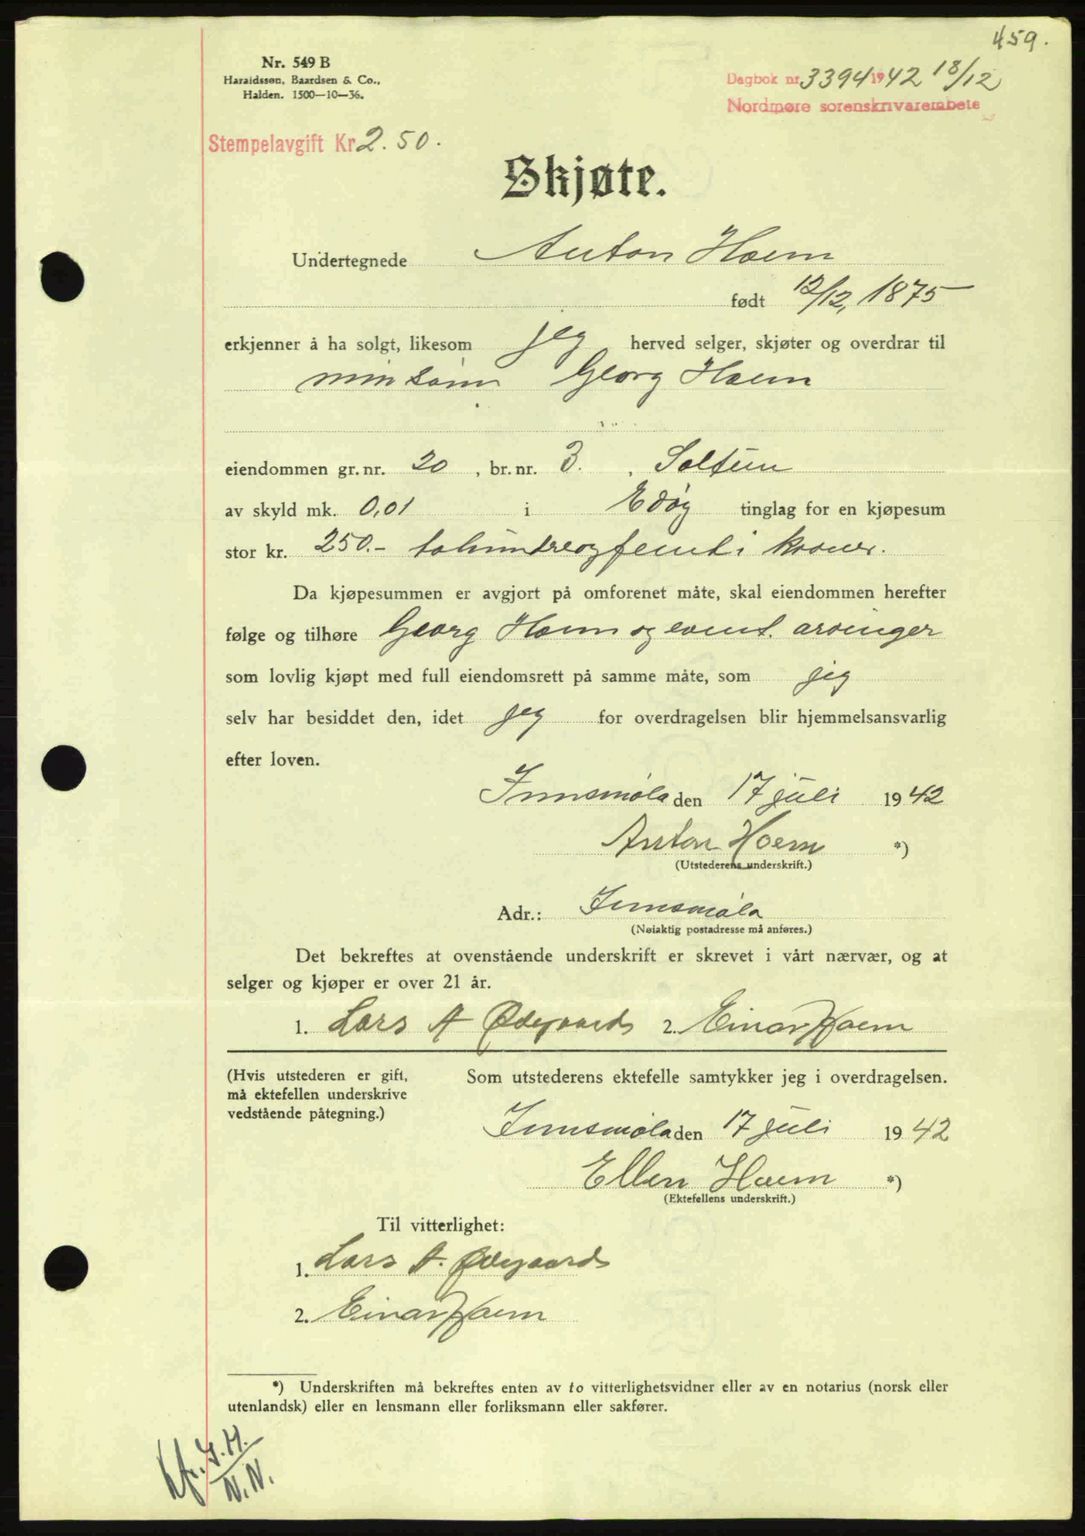 459.
Nr. 549 B
Haraldssøn, Baardsen & Co.,
Halden. 1500—10—36.
Dagbok nr. 3394 1942 18/12
Nordmøre sorenskrivarembete
Stempelavgift Kr 2.50.
Skjøte.
Undertegnede Anton Hoem
født 12/12, 1875
erkjenner å ha solgt, likesom jeg herved selger, skjøter og overdrar til
min sønn Georg Hoem
eiendommen gr. nr. 20, br. nr. 3., Soltun
av skyld mk. 0,01 i Edøy tinglag for en kjøpesum
stor kr. 250.- tohundreogfemti kroner.
Da kjøpesummen er avgjort på omforenet måte, skal eiendommen herefter
følge og tilhøre Georg Hoem og event. arvinger
som lovlig kjøpt med full eiendomsrett på samme måte, som jeg
selv har besiddet den, idet jeg for overdragelsen blir hjemmelsansvarlig
efter loven.
Innsmøla den 17 juli 1942
Anton Hoem *)
(Utstederens underskrift.)
Adr.: Innsmøla
(Nøiaktig postadresse må anføres.)
Det bekreftes at ovenstående underskrift er skrevet i vårt nærvær, og at
selger og kjøper er over 21 år.
1. Lars A Ødegaards 2. Einar Hoem
(Hvis utstederen er gift, Som utstederens ektefelle samtykker jeg i overdragelsen.
må ektefellen underskrive
vedstående påtegning.)
Innsmøla den 17 juli 1942
Ellen Hoem *)
(Ektefellens underskrift.)
Til vitterlighet:
1. Lars A. Ødegaards
2. Einar Hoem
*) Underskriften må bekreftes enten av to vitterlighetsvidner eller av en notarius (norsk eller
utenlandsk) eller en lensmann eller forliksmann eller sakfører.
N.N.